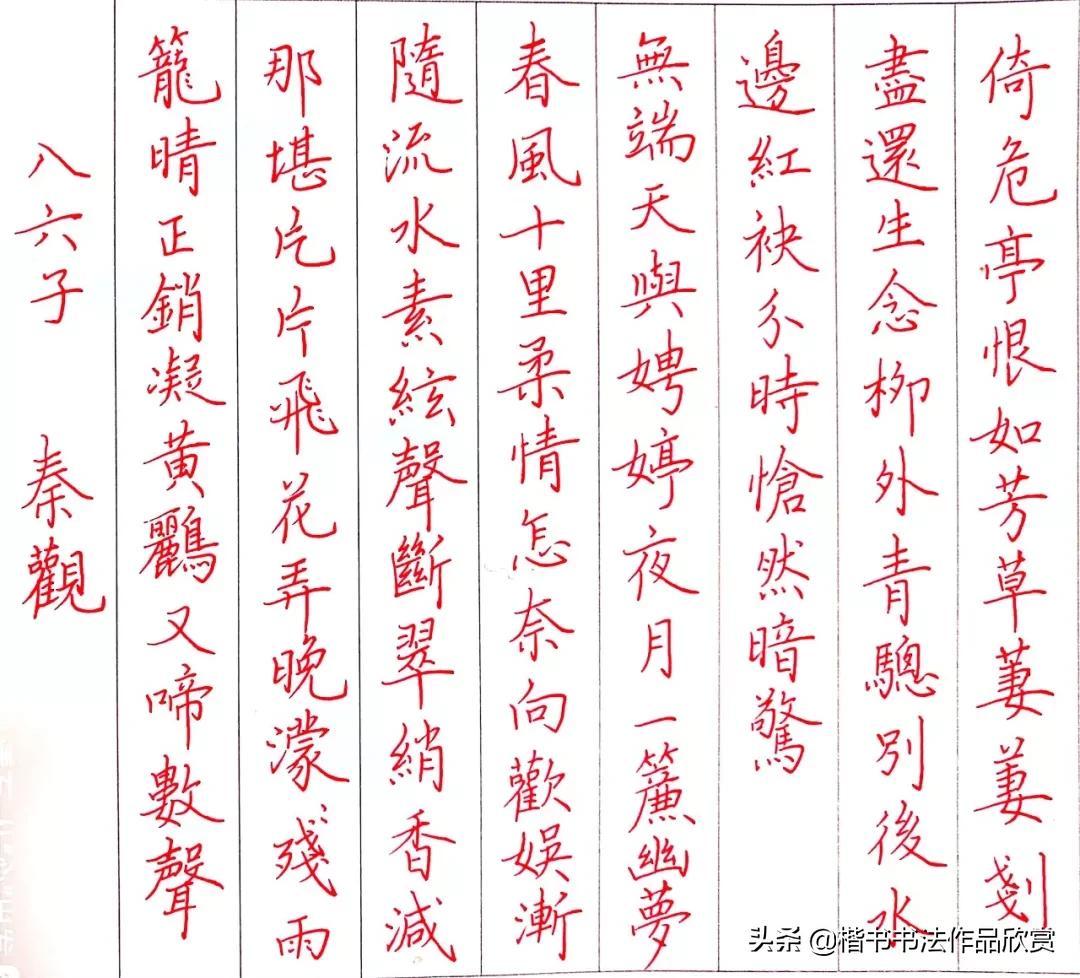 倚危亭恨如芳草萋萋剗
盡還生念柳外青驄別後水
邊紅袂分時愴然暗驚
無端天與娉婷夜月一簾幽夢
春風十里柔情怎奈向歡娛漸
隨流水素絃聲斷翠綃香減
那堪片片飛花弄晚濛〻殘雨
籠晴正銷凝黃鸝又啼數聲
八六子 秦觀
头条 @楷书书法作品欣赏